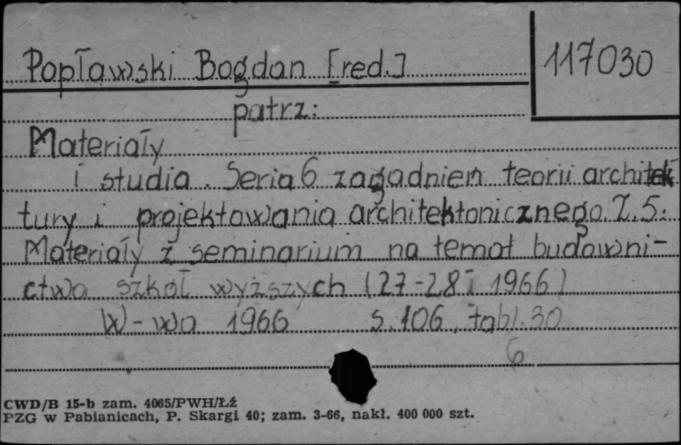 Popławski Bogdan [red.]
117030
patrz:
Materiały
i studia. Seria 6 zagadnień teorii architek
tury i projektowania architektonicznego Z. 5.
Materiały z seminarium na temat budowni-
ctwa szkół wyższych (27-28 I 1966)
W-wa 1966 s. 106, tabl. 30
6
CWD/B 15-b zam. 4065/PWH/Łź
PZG w Pabianicach, P. Skargi 40; zam. 3-66, nakł. 400 000 szt.